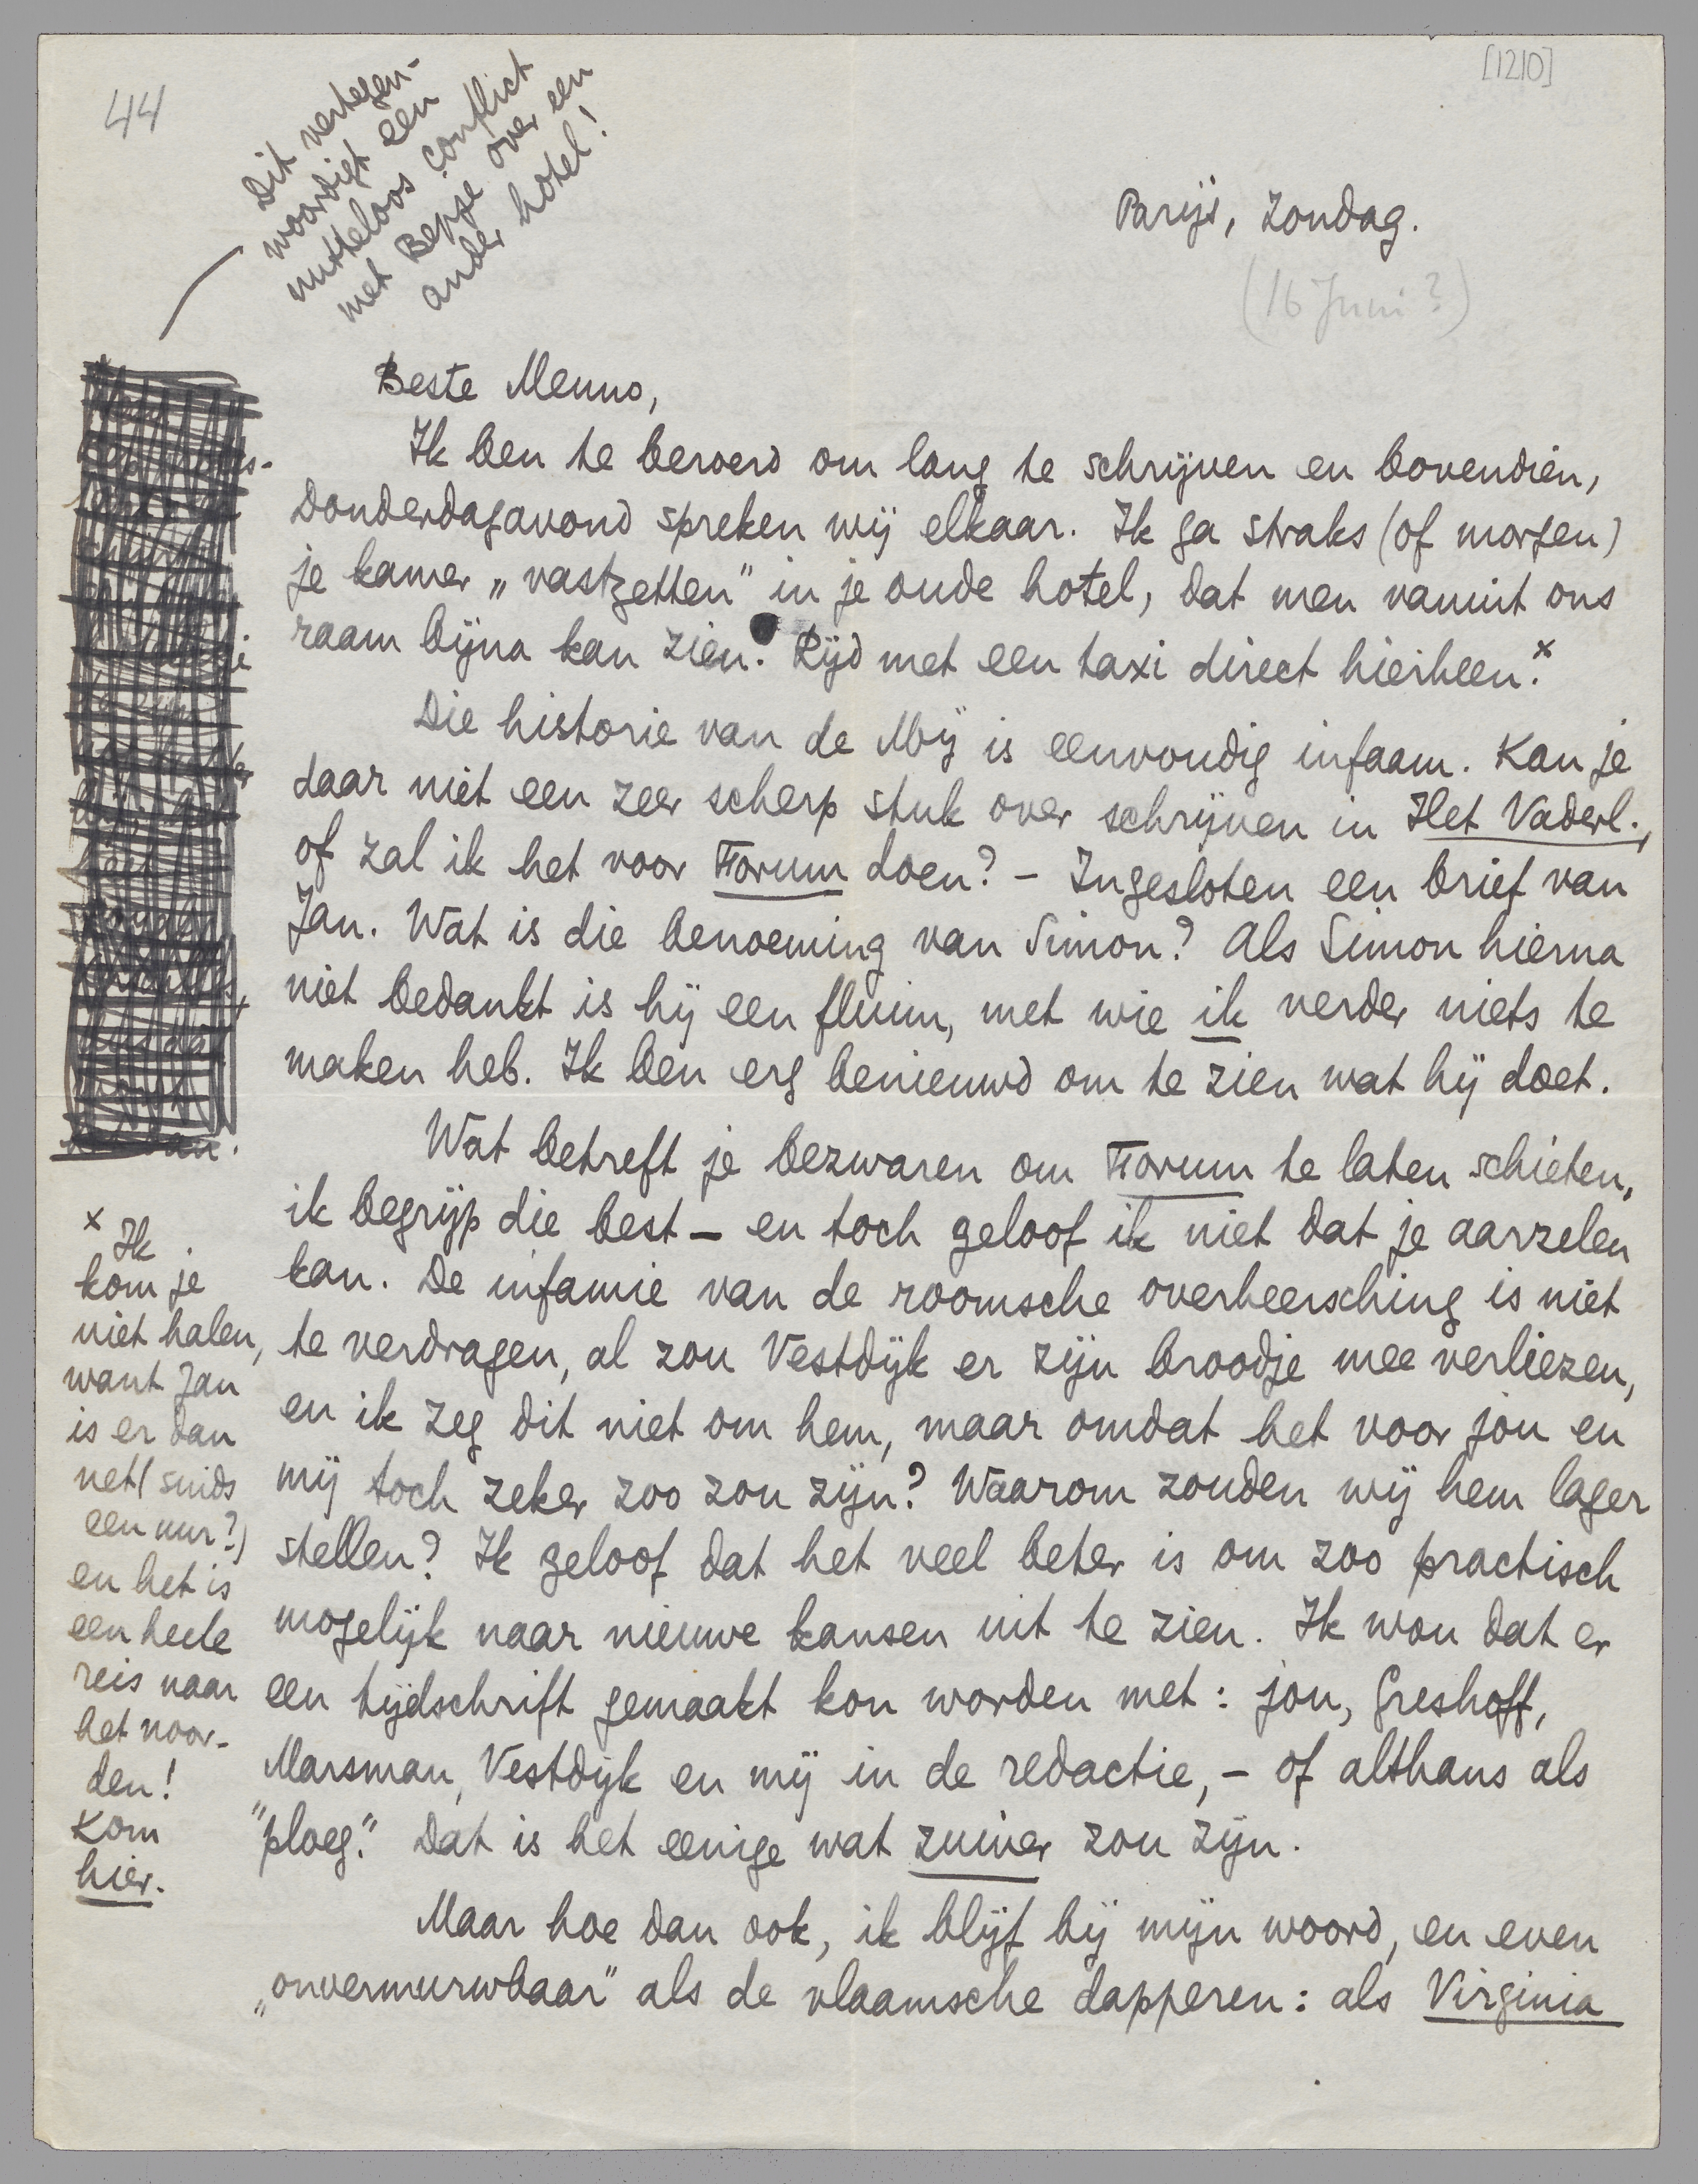 44
[1210]
Dit vertegen-
woordigt een
nutteloos conflict
met Bepje over een
ander hotel!
Parijs, Zondag.
(16 Juni?)
Beste Menno,
Ik ben te beroerd om lang te schrijven en bovendien,
Donderdagavond spreken wij elkaar. Ik ga straks (of morgen)
je kamer „vastzetten” in je oude hotel, dat men vanuit ons
raam bijna kan zien. Rijd met een taxi direct hierheen.x
Die historie van de Mij is eenvoudig infaam. Kan je
daar niet een zeer scherp stuk over schrijven in Het Vaderl.,
of zal ik het voor Forum doen? – Ingesloten een brief van
Jan. Wat is die benoeming van Simon? Als Simon hierna
niet bedankt is hij een fluim, met wie ik verder niets te
maken heb. Ik ben erg benieuwd om te zien wat hij doet.
Wat betreft je bezwaren om Forum te laten schieten,
ik begrijp die best – en toch geloof ik niet dat je aarzelen
kan. De infamie van de roomsche overheersching is niet
te verdragen, al zou Vestdijk er zijn broodje mee verliezen,
en ik zeg dit niet om hem, maar omdat het voor jou en
mij toch zeker zoo zou zijn? Waarom zouden wij hem lager
stellen? Ik geloof dat het veel beter is om zoo practisch
mogelijk naar nieuwe kansen uit te zien. Ik wou dat er
een tijdschrift gemaakt kon worden met: jou, Greshoff,
Marsman, Vestdijk en mij in de redactie, – of althans als
"ploeg." Dat is het eenige wat zuiver zou zijn.
Maar hoe dan ook, ik blijf bij mijn woord, en even
„onvermurwbaar” als de vlaamsche dapperen: als Virginia
x Ik
kom je
niet halen,
want Jan
is er dan
net (sinds
een uur?)
en het is
een heele
reis naar
het noor-
den!
Kom
hier.